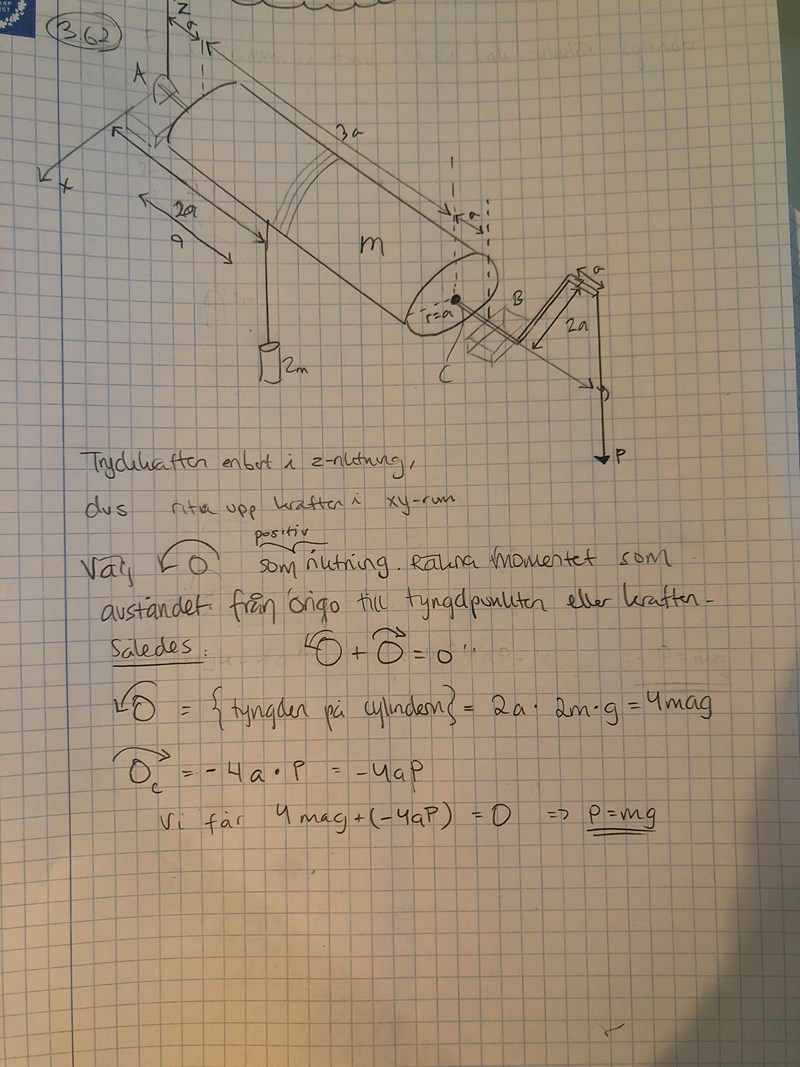 3.62
z
a
A
3a
x
2a
a
a
m
B
a
r=a
2a
C
2m
P
Tryckkraften enbart i z-riktning,
dvs rita upp kraften i xy-rum
positiv
Välj som riktning. Räkna momentet som
avståndet från origo till tyngdpunkten eller kraften.
Således: + = 0
= {tyngden på cylindern} = 2a · 2m · g = 4mag
c = -4a · P = -4aP
Vi får 4mag + (-4aP) = 0 => P = mg